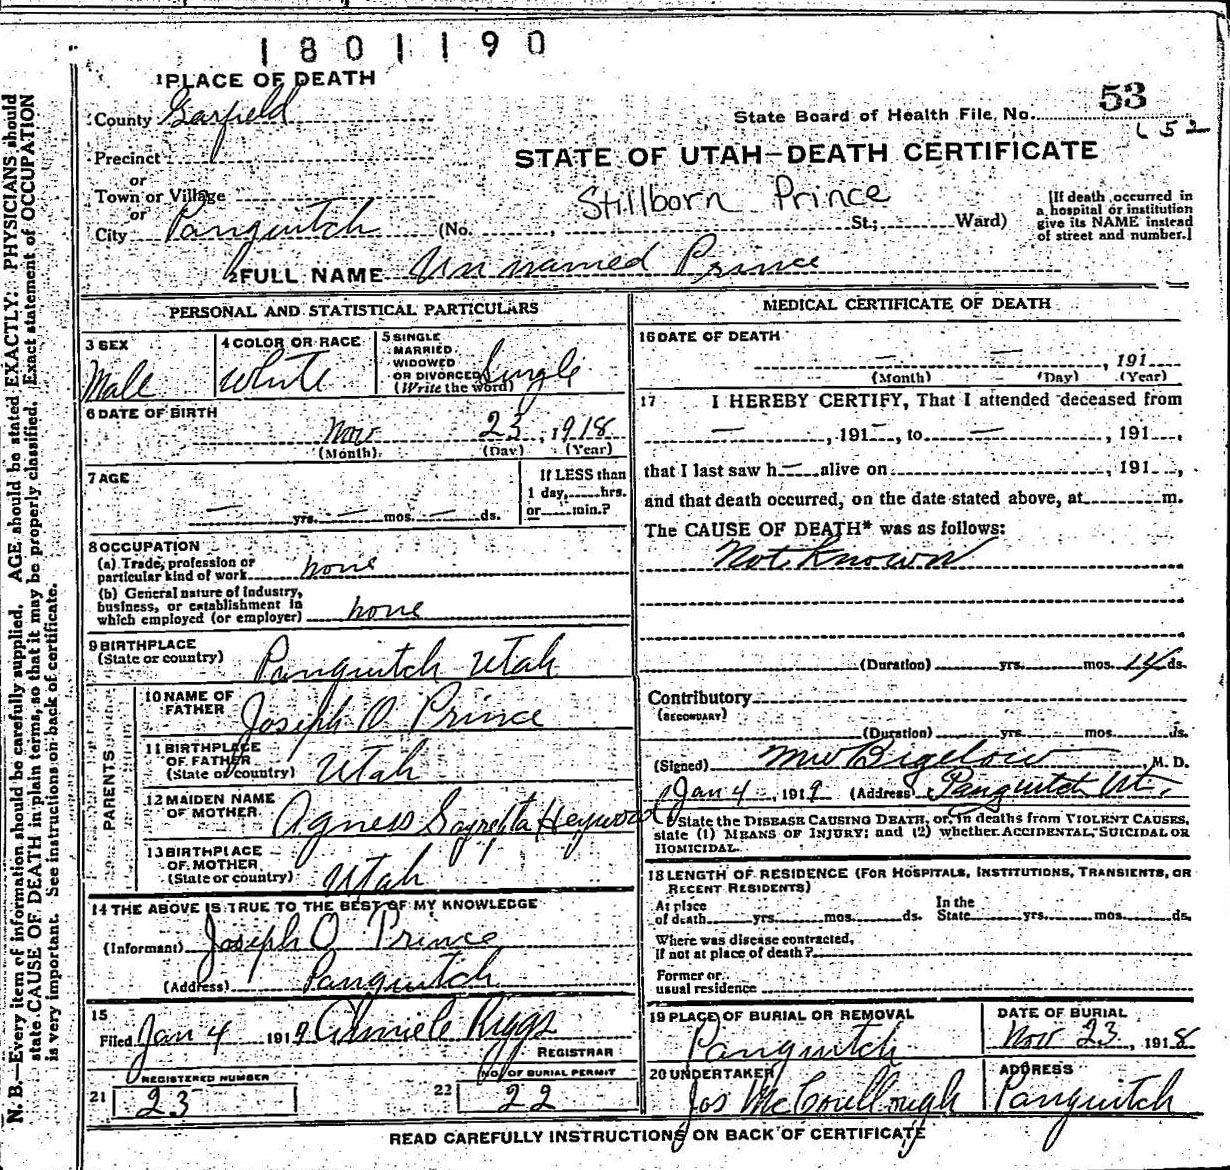 1801190
1 PLACE OF DEATH
County Garfield
State Board of Health File No. 53
52
Precinct
STATE OF UTAH—DEATH CERTIFICATE
or
Town or Village
Stillborn Prince
or
City Panguitch (No. , St; Ward)
[If death occurred in a hospital or institution give its NAME instead of street and number.]
2 FULL NAME Un named Prince
PERSONAL AND STATISTICAL PARTICULARS
3 SEX
Male
4 COLOR OR RACE
White
5 SINGLE
MARRIED
WIDOWED
OR DIVORCED
(Write the word)
Single
6 DATE OF BIRTH
Nov 23, 1918
(Month) (Day) (Year)
7 AGE
— yrs. — mos. — ds.
If LESS than
1 day, hrs.
or min.?
8 OCCUPATION
(a) Trade, profession or
particular kind of work none
(b) General nature of Industry,
business, or establishment in
which employed (or employer) none
9 BIRTHPLACE
(State or country) Panguitch Utah
PARENTS
10 NAME OF
FATHER Joseph O Prince
11 BIRTHPLACE
OF FATHER
(State or country) Utah
12 MAIDEN NAME
OF MOTHER Agness Heywood
13 BIRTHPLACE
OF MOTHER
(State or country) Utah
14 THE ABOVE IS TRUE TO THE BEST OF MY KNOWLEDGE
(Informant) Joseph O Prince
(Address) Panguitch
15
Filed Jan 4 1919 Riggs
REGISTRAR
REGISTERED NUMBER
21 23
NO. OF BURIAL PERMIT
22 22
MEDICAL CERTIFICATE OF DEATH
16 DATE OF DEATH
— —, 191
(Month) (Day) (Year)
17 I HEREBY CERTIFY, That I attended deceased from
—, 191—, to —, 191 ,
that I last saw h— alive on , 191 ,
and that death occurred, on the date stated above, at m.
The CAUSE OF DEATH* was as follows:
Not Known
(Duration) yrs. mos. 14 ds.
Contributory
(SECONDARY)
(Duration) yrs. mos. ds.
(Signed) MW Bigelow, M. D.
Jan 4, 1919 (Address) Panguitch Ut.
* State the DISEASE CAUSING DEATH, or, in deaths from VIOLENT CAUSES,
state (1) MEANS OF INJURY; and (2) whether ACCIDENTAL, SUICIDAL OR
HOMICIDAL.
18 LENGTH OF RESIDENCE (FOR HOSPITALS, INSTITUTIONS, TRANSIENTS, OR
RECENT RESIDENTS)
At place
of death yrs. mos. ds.
In the
State yrs. mos. ds.
Where was disease contracted,
if not at place of death?
Former or
usual residence
19 PLACE OF BURIAL OR REMOVAL
Panguitch
DATE OF BURIAL
Nov 23, 1918
20 UNDERTAKER
Jos McCoullough
ADDRESS
Panguitch
READ CAREFULLY INSTRUCTIONS ON BACK OF CERTIFICATE
N. B.—Every item of information should be carefully supplied. AGE should be stated EXACTLY. PHYSICIANS should
state CAUSE OF DEATH in plain terms, so that it may be properly classified. Exact statement of OCCUPATION
is very important. See instructions on back of certificate.